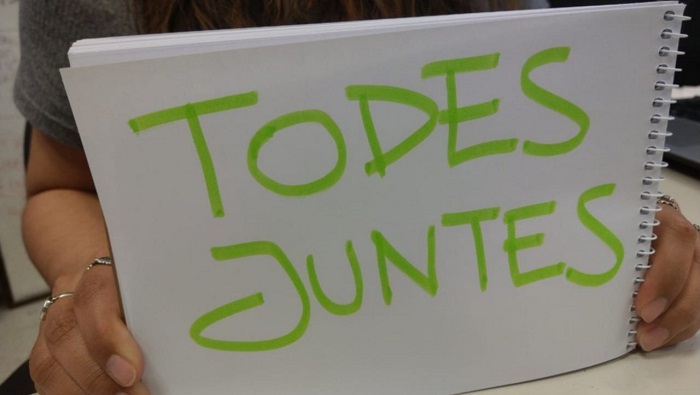 TODES
JUNTES